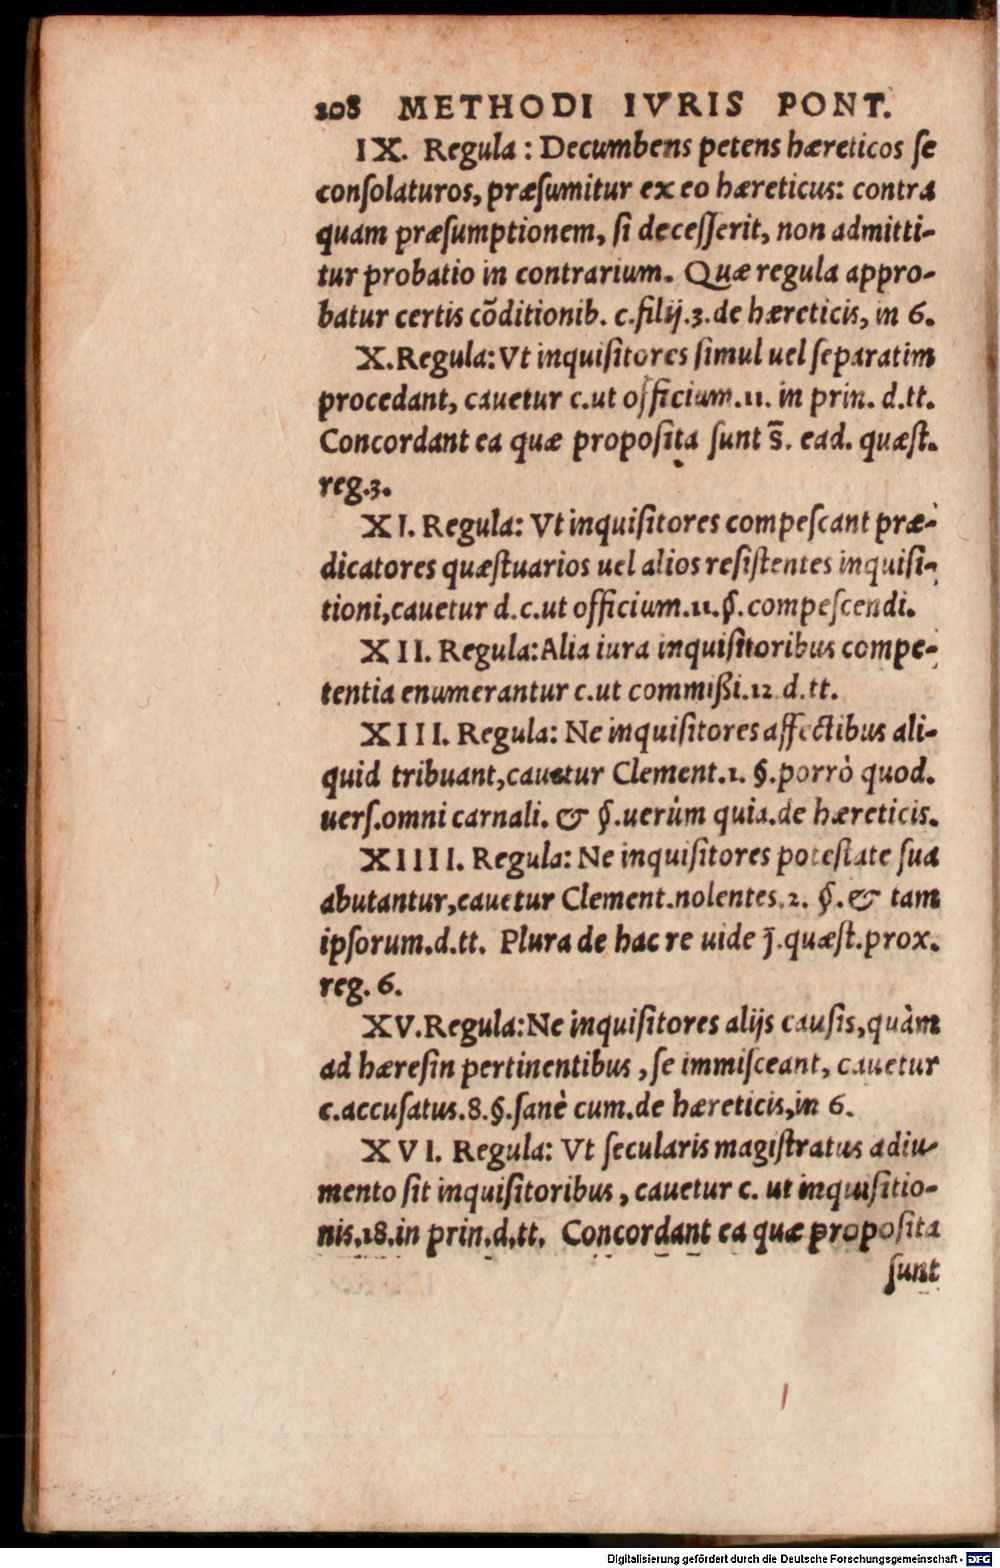 208 METHODI IVRIS PONT.
IX. Regula: Decumbens petens hæreticos se
consolaturos, præsumitur ex eo hæreticus: contra
quam præsumptionem, si decesserit, non admitti-
tur probatio in contrarium. Quæ regula appro-
batur certis cõditionib. c.filij.3.de hæreticis, in 6.
X.Regula: Vt inquisitores simul uel separatim
procedant, cauetur c.ut officium.11. in prin. d.tt.
Concordant ea quæ proposita sunt s̄. ead. quæst.
reg.3.
XI. Regula: Vt inquisitores compescant præ-
dicatores quæstuarios uel alios resistentes inquisi-
tioni,cauetur d.c.ut officium.11.§.compescendi.
XII. Regula:Alia iura inquisitoribus compe-
tentia enumerantur c.ut commißi.12 d.tt.
XIII. Regula: Ne inquisitores affectibus ali-
quid tribuant,cauetur Clement.1. §.porrò quod.
uers.omni carnali. & §.uerùm quia.de hæreticis.
XIIII. Regula: Ne inquisitores potestate sua
abutantur,cauetur Clement.nolentes.2. §.& tam
ipsorum.d.tt. Plura de hac re uide j̄.quæst.prox.
reg. 6.
XV.Regula:Ne inquisitores alijs causis,quàm
ad hæresin pertinentibus, se immisceant, cauetur
c.accusatus.8.§.sanè cum.de hæreticis,in 6.
XVI. Regula: Vt secularis magistratus adiu-
mento sit inquisitoribus, cauetur c. ut inquisitio-
nis.18.in prin.d.tt. Concordant ea quæ proposita
sunt
Digitalisierung gefördert durch die Deutsche Forschungsgemeinschaft - DFG